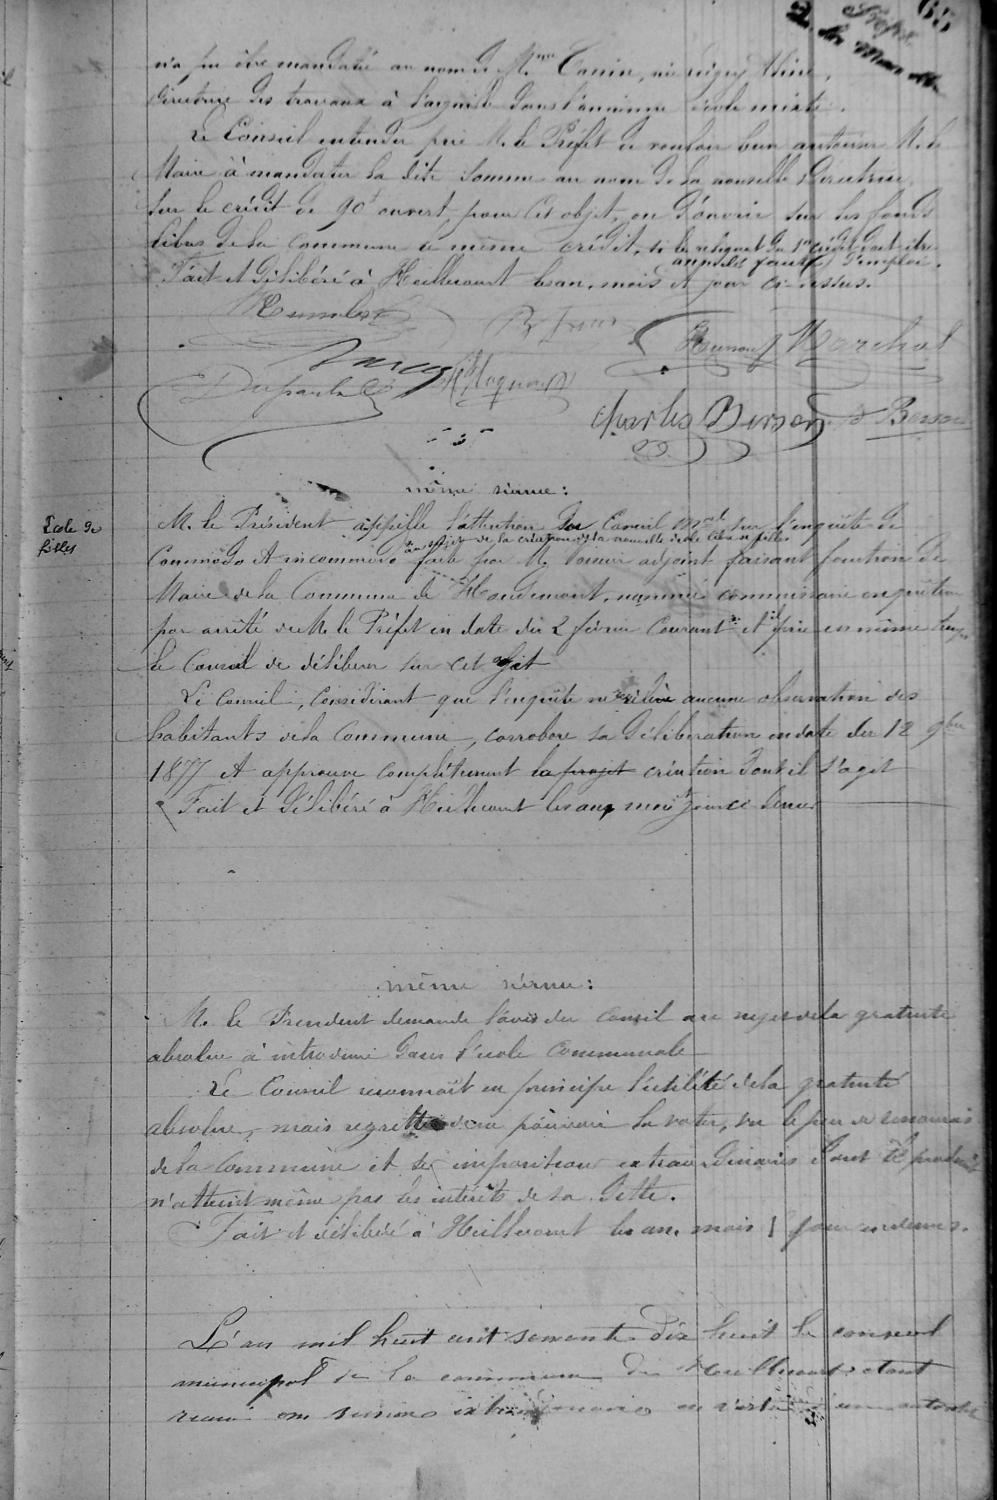 65
Préfet
n'a pu être mandatée au nom de Mme née Aline,
directrice des travaux à l'aiguille dans l'ancienne école mixte.
Le Conseil entendu prie M. le Préfet de vouloir bien autoriser M. le
Maire à mandater la dite somme au nom de la nouvelle Directrice,
sur le crédit de 90f ouvert pour cet objet, ou d'ouvrir sur les fonds
libres de la commune le même crédit, si le reliquat du 1er crédit doit être
annulé faute d'emploi.
Fait et délibéré à Heillecourt les an, mois et jour ci-dessus.
Marchal
Charles Berson
même séance:
École de
filles
M. le Président appelle l'attention du Conseil mpal sur l'enquête de
au sujet de la création de la nouvelle école de filles
Commodo et incommodo faite par M. Voinier adjoint faisant fonction de
Maire de la Commune de Houdemont, nommé commissaire enquêteur
par arrêté de M. le Préfet en date du 2 février courant et il prie en même temps
le Conseil de délibérer sur cet objet
Le Conseil, considérant que l'enquête ne relève aucune observation des
habitants de la Commune, corrobore sa délibération en date du 12 9bre
1877 et approuve complètement la projet création dont il s'agit
Fait et délibéré à Heillecourt les an, mois et jour ci-dessus
même séance:
M. le Président demande l'avis du Conseil au sujet de la gratuité
absolue à introduire dans l'école communale
Le Conseil reconnaît en principe l'utilité de la gratuité
absolue, mais regrette de ne pouvoir la voter, vu le peu de ressources
de la commune et les impositions extraordinaires dont le produit
n'atteint même pas les intérêts de sa dette.
Fait et délibéré à Heillecourt les an, mois & jour ci-dessus.
L'an mil huit cent soixante dix huit le conseil
municipal de la commune de Heillecourt étant
réuni en session extraordinaire en vertu d'une autorisation